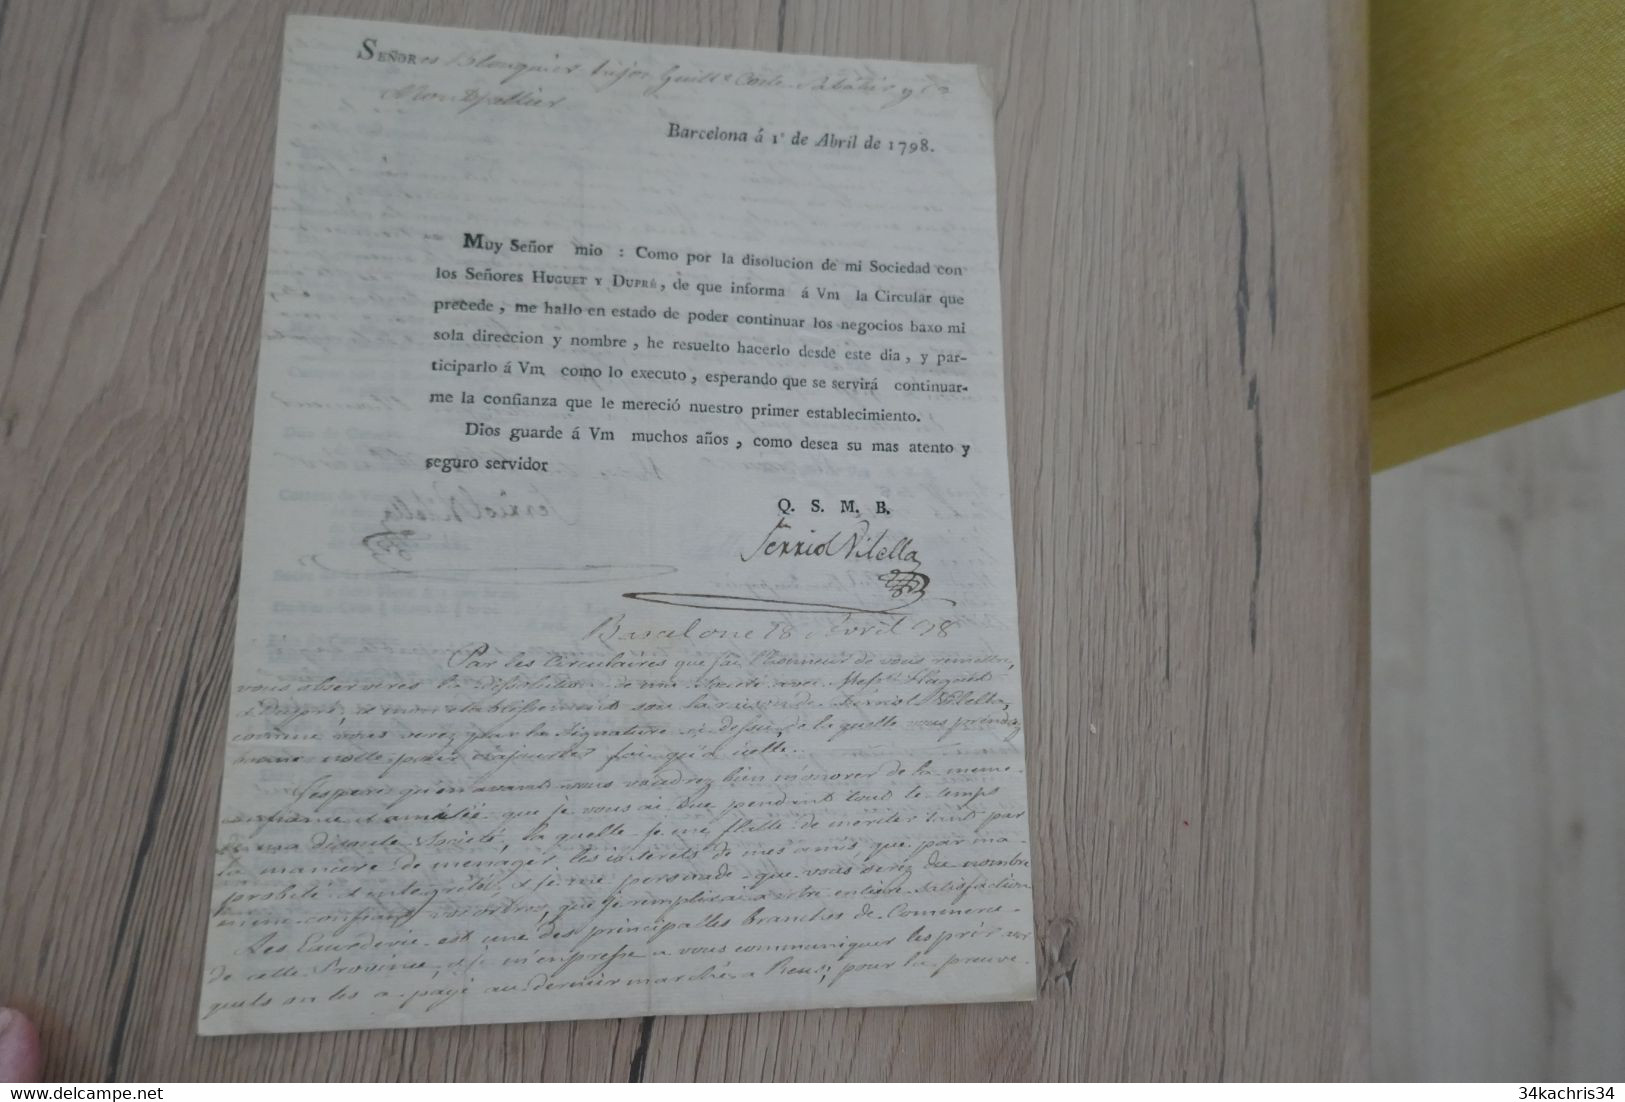 SEÑORes Blouquier hijos Guill.e Coste Sabatier y Ca
Montpellier
Barcelona á 1º de Abril de 1798.
Muy Señor mio : Como por la disolucion de mi Sociedad con
los Señores HUGUET Y DUPRÉ, de que informa á Vm la Circular que
precede, me hallo en estado de poder continuar los negocios baxo mi
sola direccion y nombre, he resuelto hacerlo desde este dia, y par-
ticiparlo á Vm como lo executo, esperando que se servirá continuar-
me la confianza que le mereció nuestro primer establecimiento.
Dios guarde á Vm muchos años, como desea su mas atento y
seguro servidor
Q. S. M. B.
Ferriol Vilella
Barcelone 28 Avril 98
Par les Circulaires que j'ai l'honneur de vous remettre,
vous observires la dissolution de ma Societé avec Mess.rs Huguet
& Dupré, et mon etablissement sou la raison de Ferriol Vilella,
comme vous veres par la Signature ci dessu, de la quelle vous prendrez
bonne notte pour n'ajouter foi qu'a icelle.
J'espere qu'en avant vous voudrez bien m'onorer de la meme
confiance et amitiée que je vous ai due pendant tout le temps
de ma disoute Societé, la quelle je me flatte de meriter tant par
la maniere de menager les interets de mes amis que par ma
probité et integrité, et je me persuade que vous serez du nombre
en me confiant vos ordres, que je remplirai a votre entiere Satisfaction
Les Eauxdevie est une des principalles branches de Commerce
de cette Province, et je m'empresse a vous communiquer les prix aux
quels on les a payé au dernier marché a Reus; pour la preuve
34kachris34